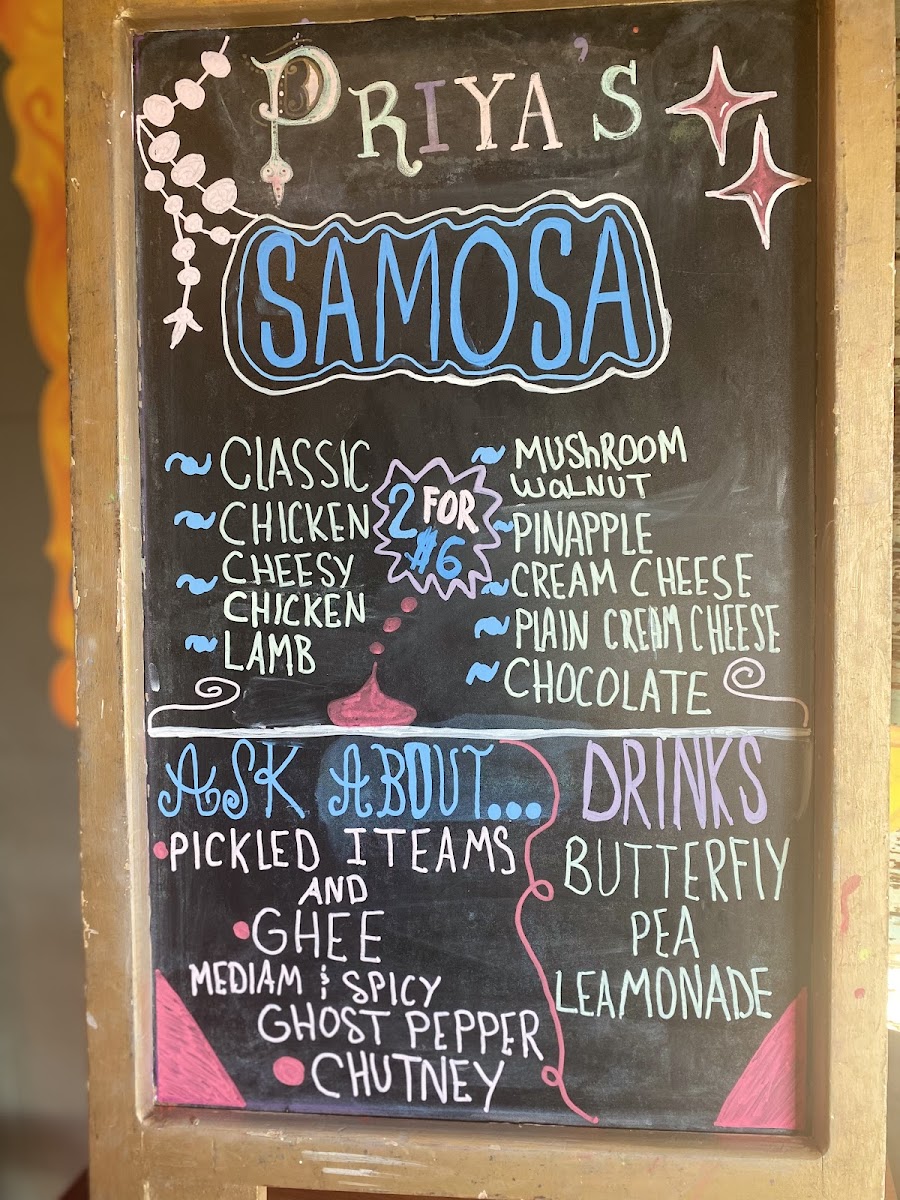 PRIYA'S
SAMOSA
~ CLASSIC
~ CHICKEN
~ CHEESY
CHICKEN
~ LAMB
2 FOR
$6
~ MUSHROOM
WALNUT
~ PINAPPLE
~ CREAM CHEESE
~ PLAIN CREAM CHEESE
~ CHOCOLATE
ASK ABOUT...
• PICKLED ITEAMS
AND
• GHEE
MEDIAM & SPICY
GHOST PEPPER
• CHUTNEY
DRINKS
BUTTERFLY
PEA
LEAMONADE